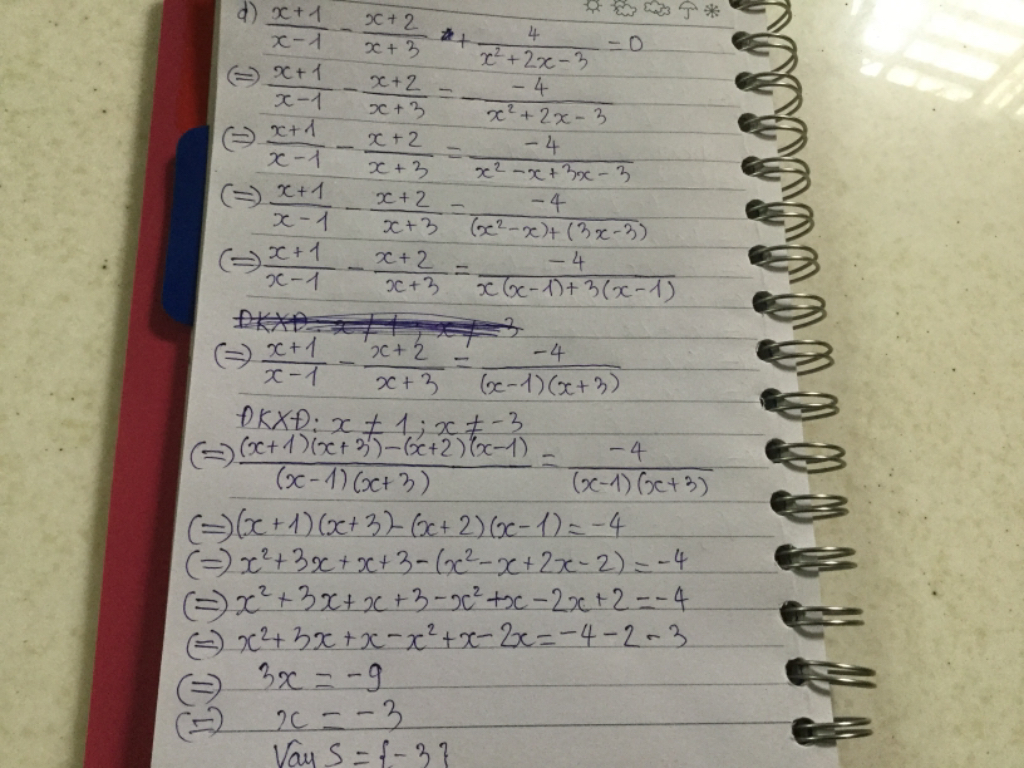 d) (x+1)/(x-1) - (x+2)/(x+3) + 4/(x²+2x-3) = 0
(=) (x+1)/(x-1) - (x+2)/(x+3) = -4/(x²+2x-3)
(=) (x+1)/(x-1) - (x+2)/(x+3) = -4/(x²-x+3x-3)
(=) (x+1)/(x-1) - (x+2)/(x+3) = -4/((x²-x)+(3x-3))
(=) (x+1)/(x-1) - (x+2)/(x+3) = -4/(x(x-1)+3(x-1))
(=) (x+1)/(x-1) - (x+2)/(x+3) = -4/((x-1)(x+3))
ĐKXĐ: x ≠ 1 ; x ≠ -3
(=) ((x+1)(x+3)-(x+2)(x-1))/((x-1)(x+3)) = -4/((x-1)(x+3))
(=) (x+1)(x+3)-(x+2)(x-1) = -4
(=) x²+3x+x+3-(x²-x+2x-2) = -4
(=) x²+3x+x+3-x²+x-2x+2 = -4
(=) x²+3x+x-x²+x-2x = -4-2-3
(=) 3x = -9
(=) x = -3
Vậy S = {-3}